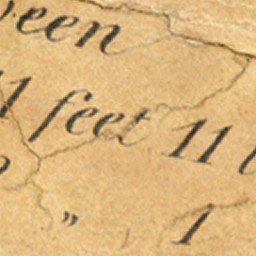 een
11 feet 11
" 1